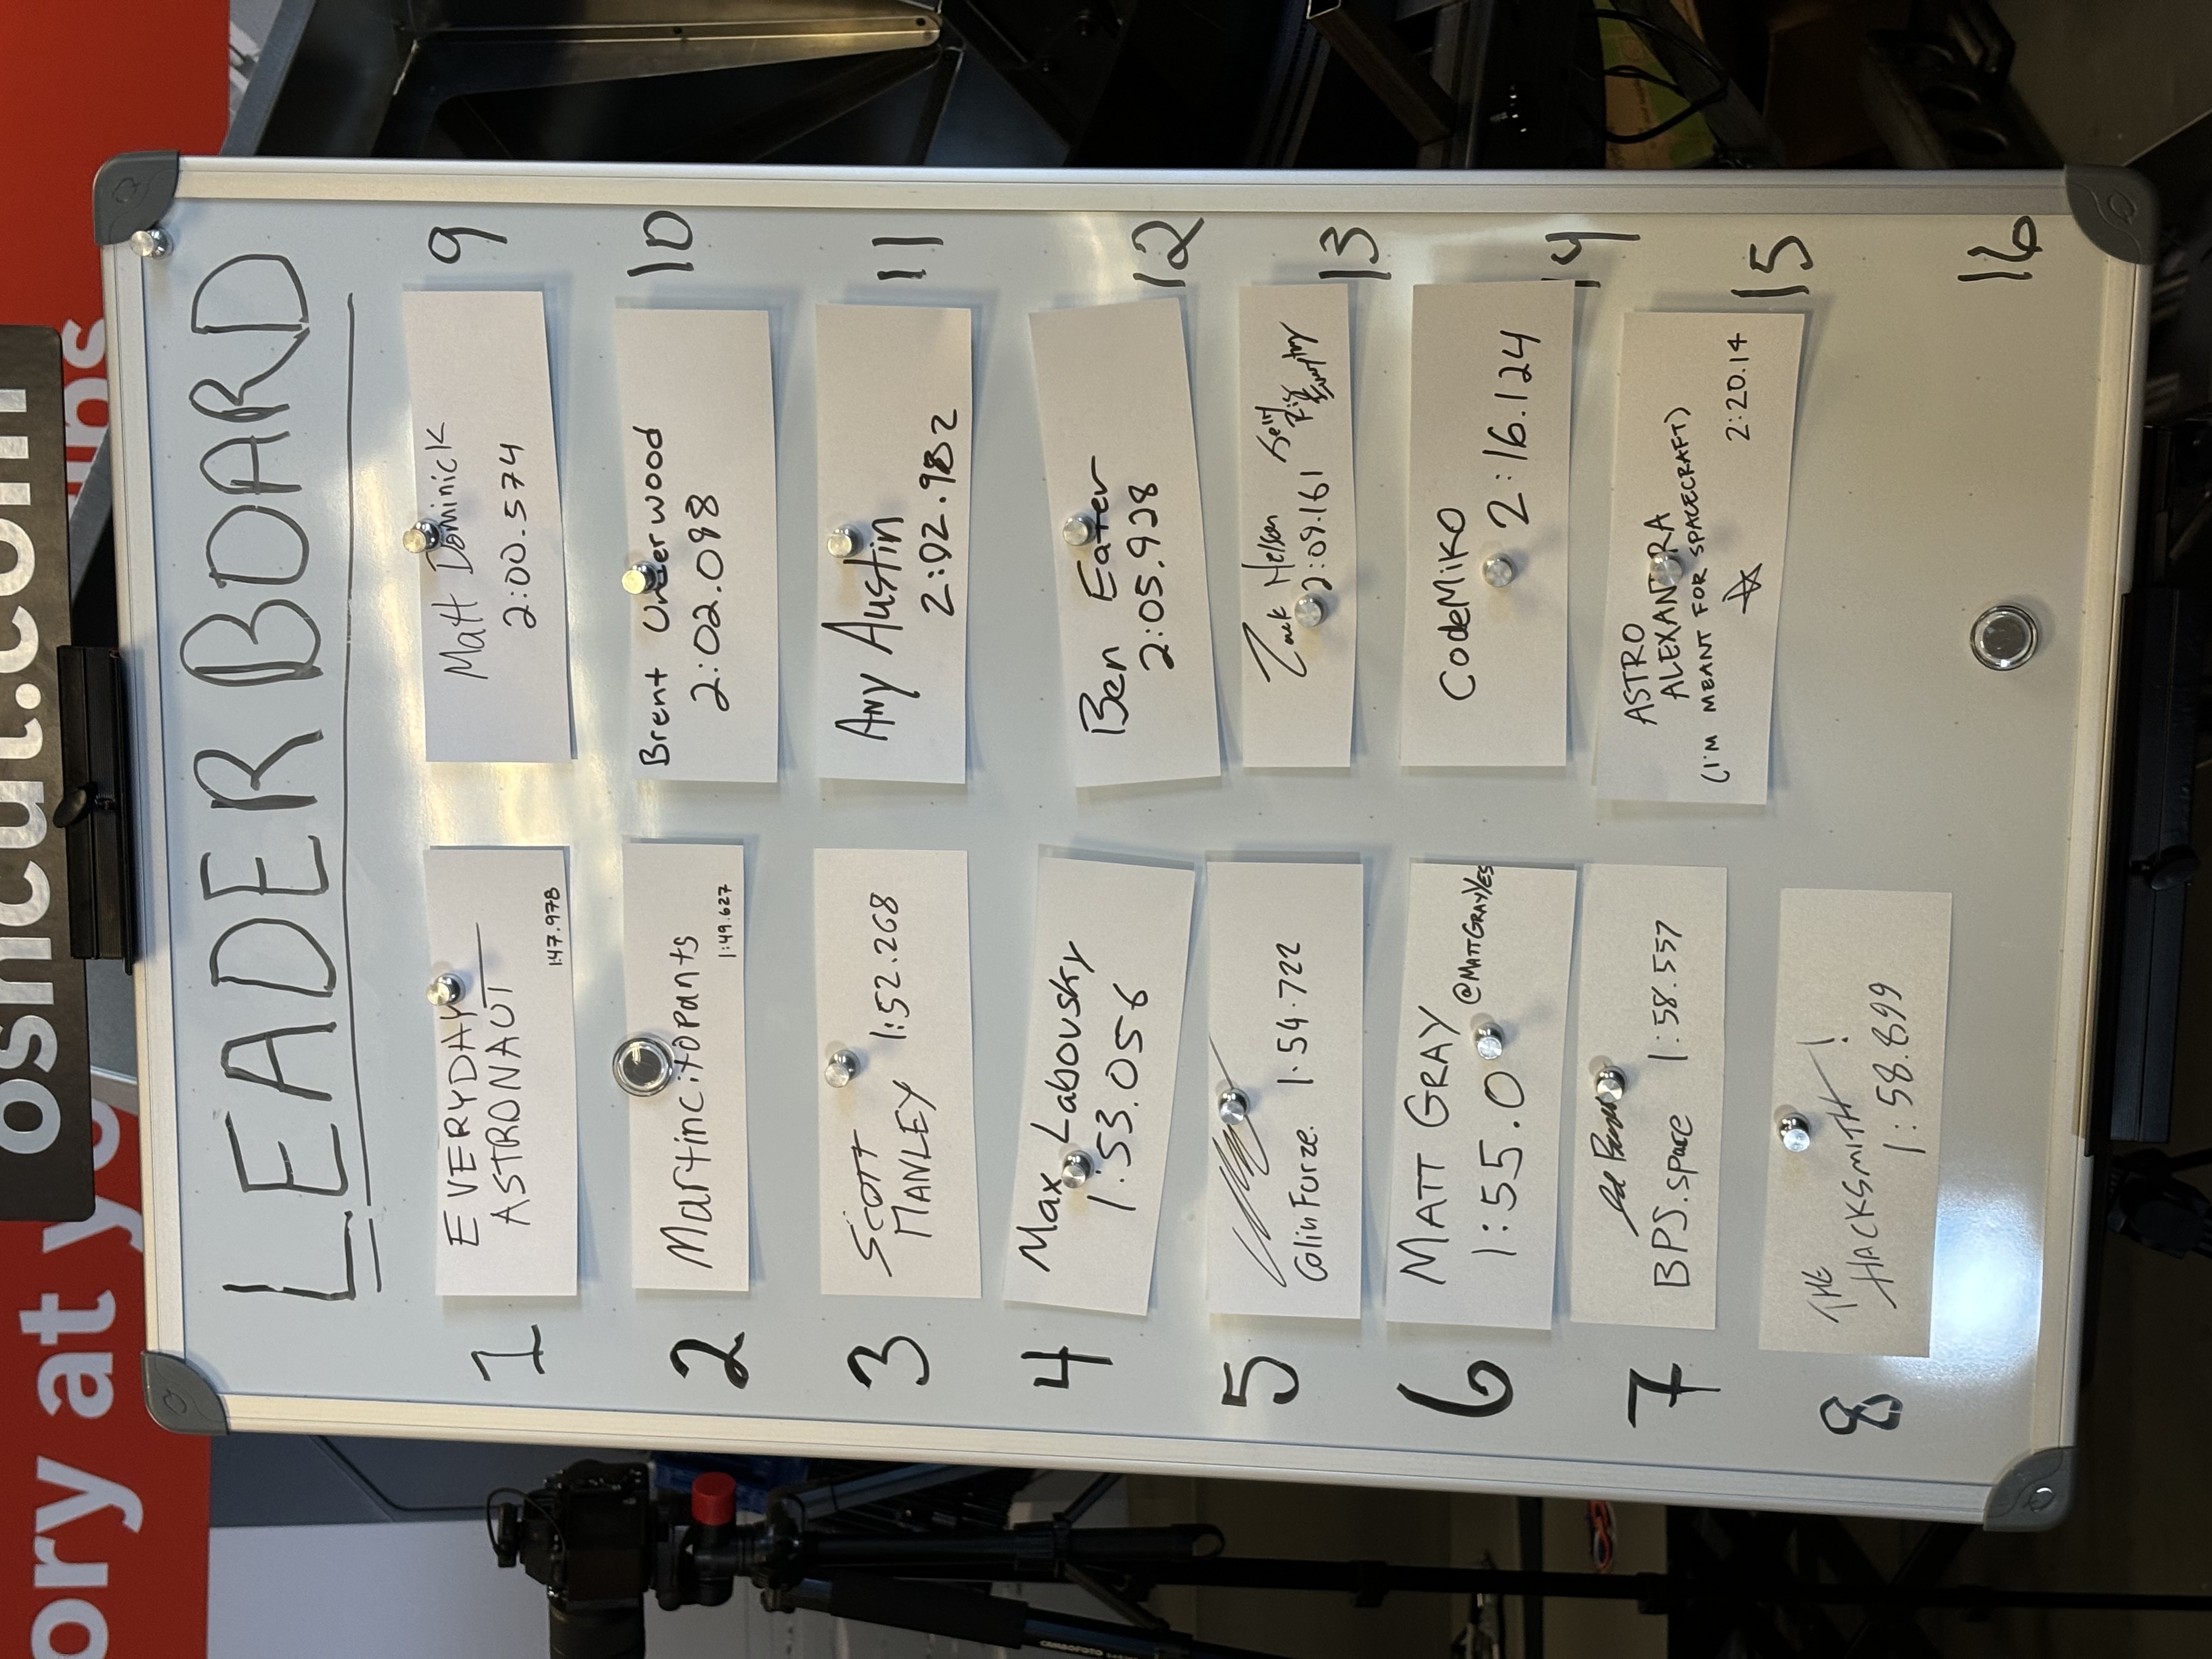 oshcut.com
ory at yo
ips
LEADER BOARD
1
EVERYDAY
ASTRONAUT
1:47.978
2
Martincitopants
1:49.627
3
SCOTT
MANLEY 1:52.268
4
Max Labovsky
1:53.056
5
Colin Furze. 1.54.722
6
MATT GRAY
@MATTGRAYYES
1:55.0
7
BPS.space 1:58.557
8
THE
HACKSMITH!
1:58.899
Matt Dominick
2:00.574
9
Brent Underwood
2:02.098
10
Any Austin
2:02.982
11
Ben Eater
2:05.928
12
Zack Nelson Jerry
Rig
2:09.161 Everything
13
CodeMiko
2:16.124
14
ASTRO
ALEXANDRA
(I'M MEANT FOR SPACECRAFT)
2:20.14
15
16